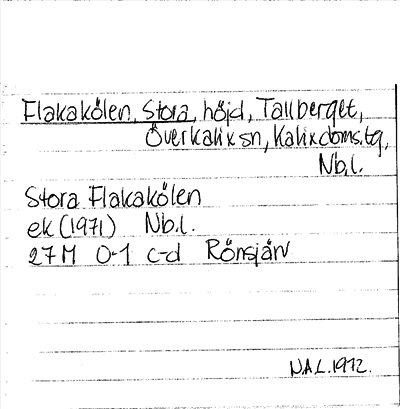 Flakakölen, Stora, höjd, Tallberget,
Överkalix sn, Kalix doms.tg,
Nb.l.
Stora Flakakölen
ek (1971) Nb.l.
27 M 0-1 c-d Rönsjärv
NAL.1972.